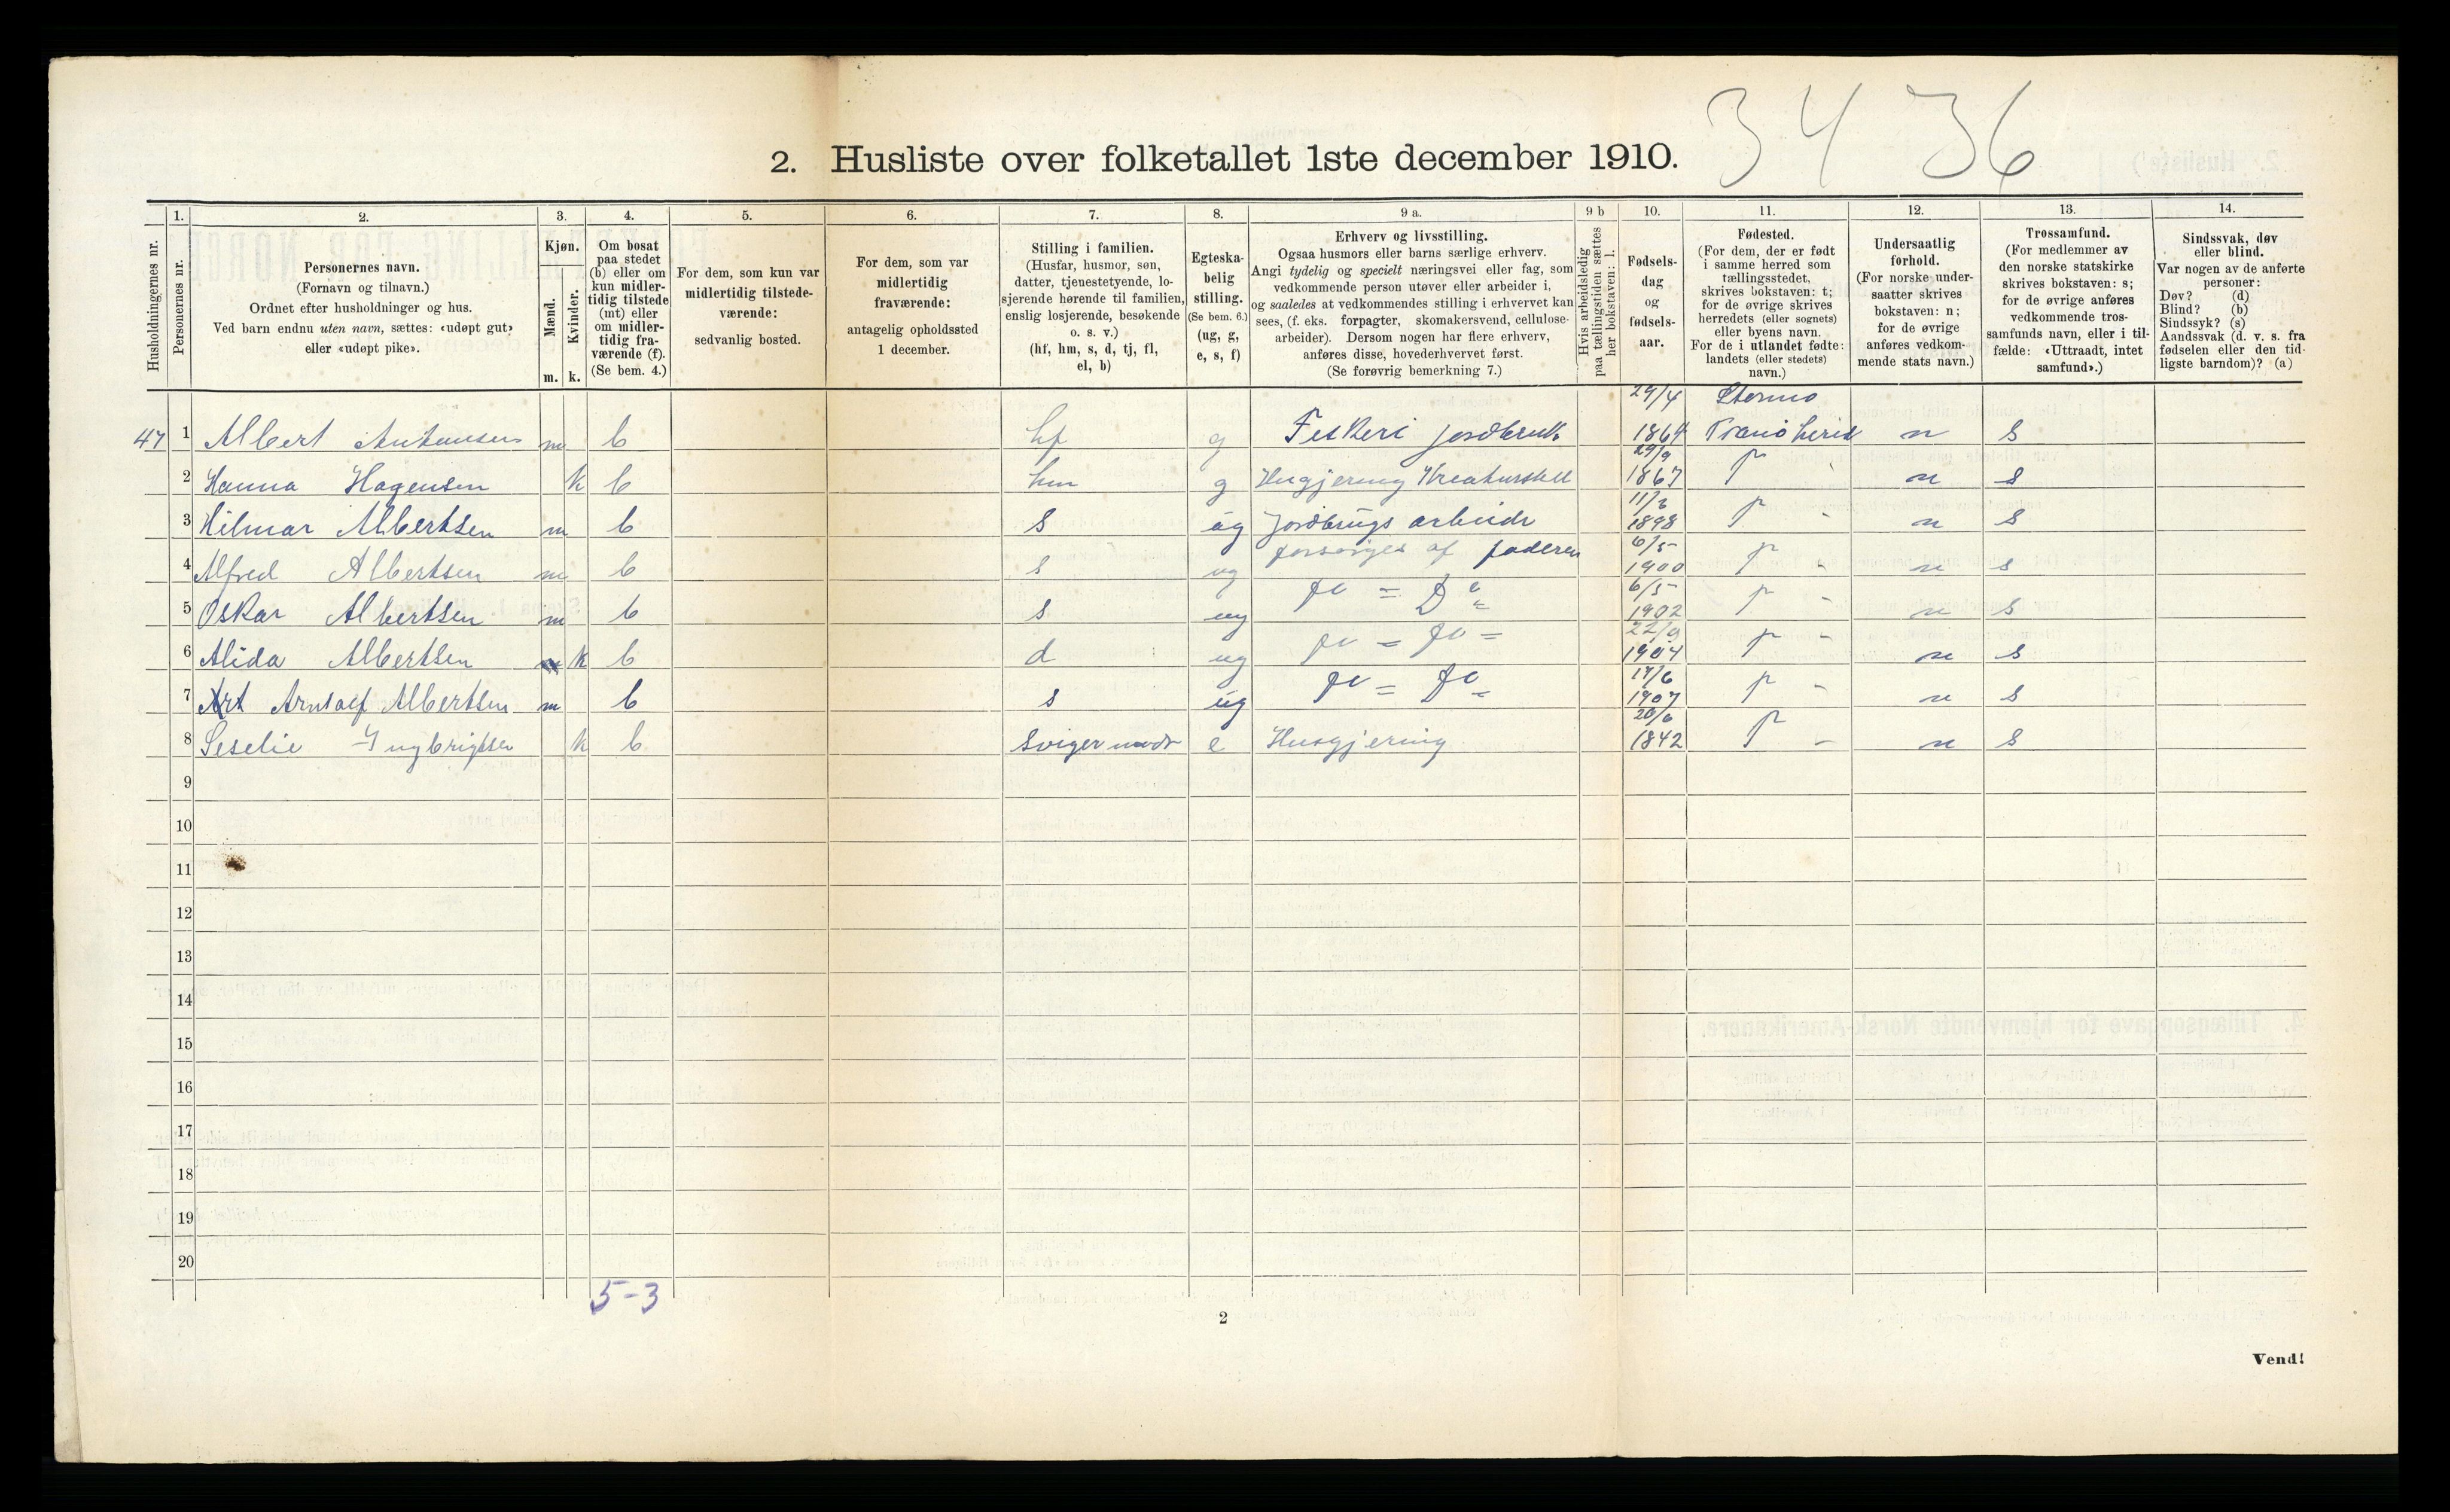 34 36
2. Husliste over folketallet 1ste december 1910.
Husholdningernes nr.
1.
Personernes nr.
2.
Personernes navn.
(Fornavn og tilnavn.)
Ordnet efter husholdninger og hus.
Ved barn endnu uten navn, sættes: «udøpt gut»
eller «udøpt pike».
3.
Kjøn.
Mænd.
Kvinder.
m. k.
4.
Om bosat
paa stedet
(b) eller om
kun midler-
tidig tilstede
(mt) eller
om midler-
tidig fra-
værende (f).
(Se bem. 4.)
5.
For dem, som kun var
midlertidig tilstede-
værende:
sedvanlig bosted.
6.
For dem, som var
midlertidig
fraværende:
antagelig opholdssted
1 december.
7.
Stilling i familien.
(Husfar, husmor, søn,
datter, tjenestetyende, lo-
sjerende hørende til familien,
enslig losjerende, besøkende
o. s. v.)
(hf, hm, s, d, tj, fl,
el, b)
8.
Egteska-
belig
stilling.
(Se bem. 6.)
(ug, g,
e, s, f)
9 a.
Erhverv og livsstilling.
Ogsaa husmors eller barns særlige erhverv.
Angi tydelig og specielt næringsvei eller fag, som
vedkommende person utøver eller arbeider i,
og saaledes at vedkommendes stilling i erhvervet kan
sees, (f. eks. forpagter, skomakersvend, cellulose-
arbeider). Dersom nogen har flere erhverv,
anføres disse, hovederhvervet først.
(Se forøvrig bemerkning 7.)
9 b
Hvis arbeidsledig
paa tællingstiden sættes
her bokstaven: l.
10.
Fødsels-
dag
og
fødsels-
aar.
11.
Fødested.
(For dem, der er født
i samme herred som
tællingsstedet,
skrives bokstaven: t;
for de øvrige skrives
herredets (eller sognets)
eller byens navn.
For de i utlandet fødte:
landets (eller stedets)
navn.)
12.
Undersaatlig
forhold.
(For norske under-
saatter skrives
bokstaven: n;
for de øvrige
anføres vedkom-
mende stats navn.)
13.
Trossamfund.
(For medlemmer av
den norske statskirke
skrives bokstaven: s;
for de øvrige anføres
vedkommende tros-
samfunds navn, eller i til-
fælde: «Uttraadt, intet
samfund».)
14.
Sindssvak, døv
eller blind.
Var nogen av de anførte
personer:
Døv? (d)
Blind? (b)
Sindssyk? (s)
Aandssvak (d. v. s. fra
fødselen eller den tid-
ligste barndom)? (a)
29/4
47 1 Albert m b hf g Feskeri jordbruk 1864 n s
29/9
2 Hanna Hagensen k b hm g Husgjerning Kreaturstell 1867 n s
3 Hilmar Albertsen m b s ug Jordbrugs arbeide 1898 n s
forsørges af faderen 6/5
4 Alfred Albertsen m b s ug 1900 n s
6/5
5 Oskar Albertsen m b s ug 1902 n s
22/9
6 Alida Albertsen k b d ug 1904 n s
17/6
7 Arntolf Albertsen m b s ug 1907 n s
20/6
8 Seselie Ingbrigtsen k b Svigermodr e Husgjerning 1842 n s
9
10
11
12
13
14
15
16
17
18
19
20
5-3
2
Vend!